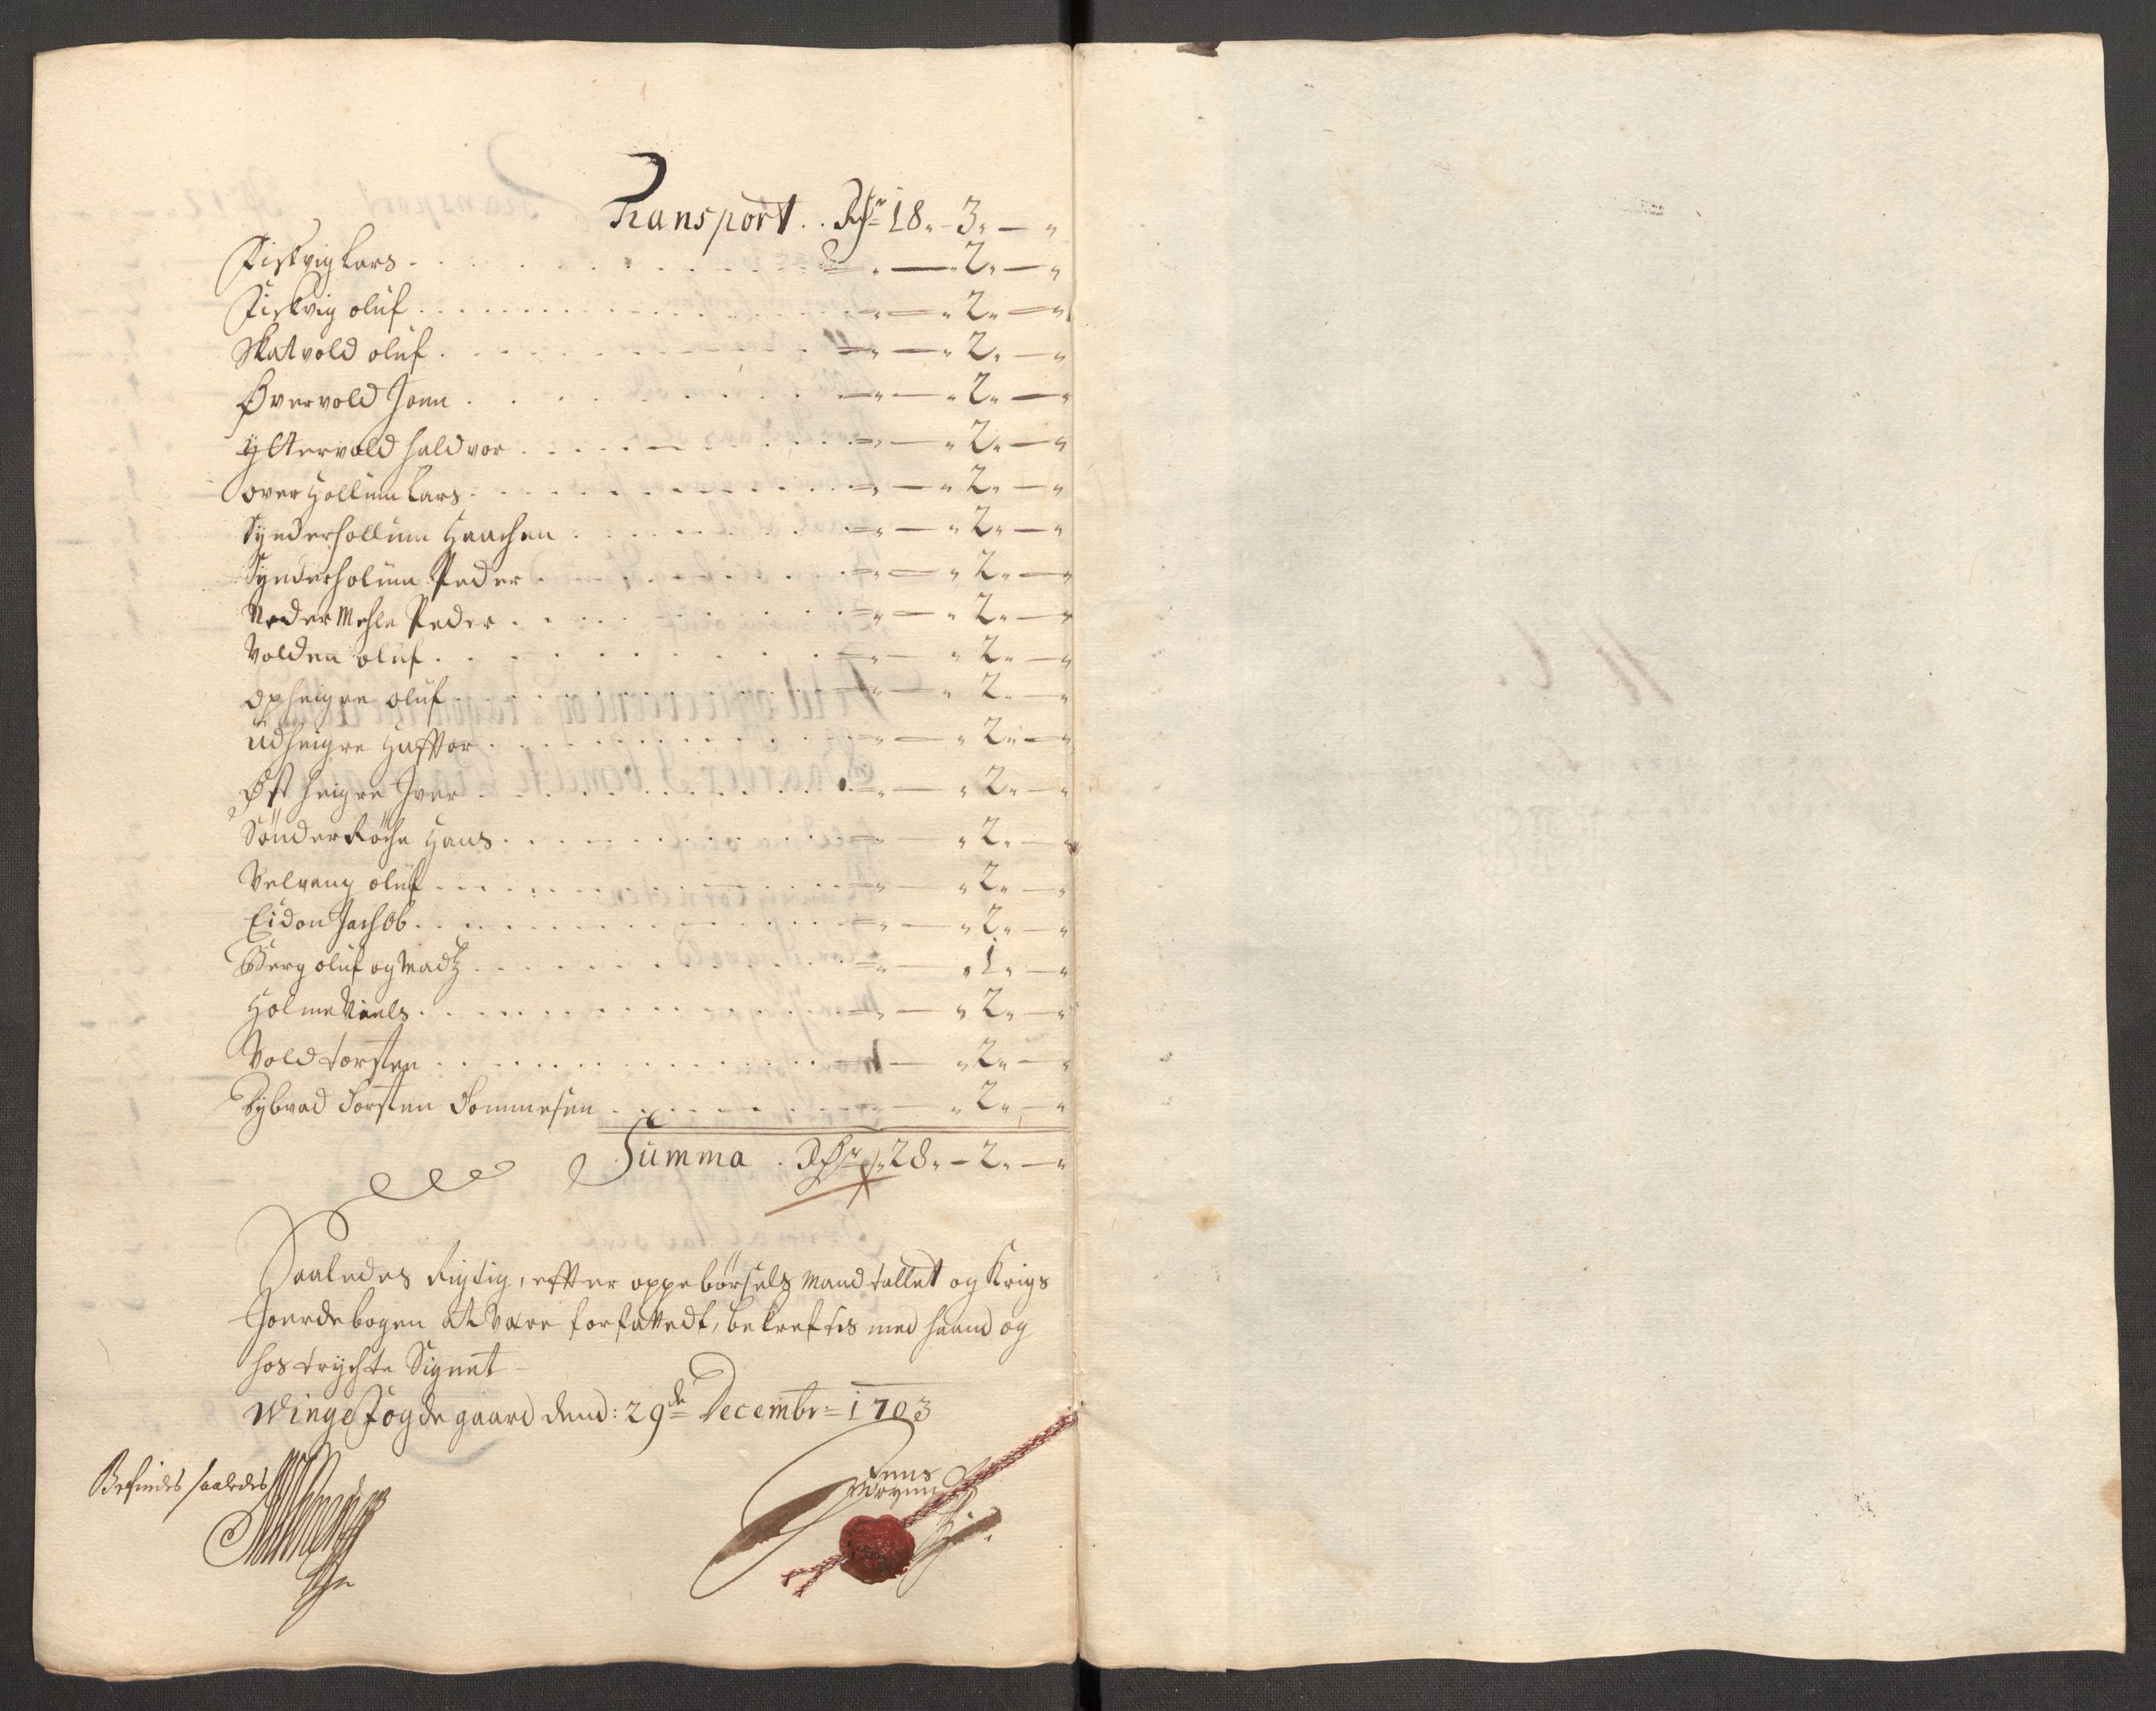 Transport . . Rdr 18 „ 3 „ — „
Fiskvig Lars . . . „ — „ 2 „ — „
Fiskvig oluf . . . „ — „ 2 „ — „
Skatvold oluf . . . „ — „ 2 „ — „
Øvervold Joen . . . „ — „ 2 „ — „
ÿttervold haldvor . . . „ — „ 2 „ — „
over Hollum Lars . . . „ — „ 2 „ — „
Synderhollum Haachen . . . „ — „ 2 „ — „
Synderholum Peder . . . „ — „ 2 „ — „
Neder Mehle Peder . . . „ — „ 2 „ — „
Volden oluf . . . „ — „ 2 „ — „
opheigre oluf . . . „ — „ 2 „ — „
udheigre Haffvor . . . „ — „ 2 „ — „
Øst heigre Iver . . . „ — „ 2 „ — „
Sönder Röche Hans . . . „ — „ 2 „ — „
Velvang oluf . . . „ — „ 2 „ — „
Eidon Jachob . . . „ — „ 2 „ — „
Berg oluf og Madtz . . . „ — „ 1 „ — „
Holme Niels . . . „ — „ 2 „ — „
Vold torsten . . . „ — „ 2 „ — „
Dybvad Torsten Tommesen . . . „ — „ 2 „ — „
Summa . Rdr „ 28 „ – 2 „ — „
Saaledes Rigtig, effter oppebörsels mandtallet og Krigs
Joerdebogen at være forfattedt, bekreftes med haand og
hostrychte Signet –
Winge Fogdegaard dend: 29de Decembr= 1703
Befindes saaledes
Jens